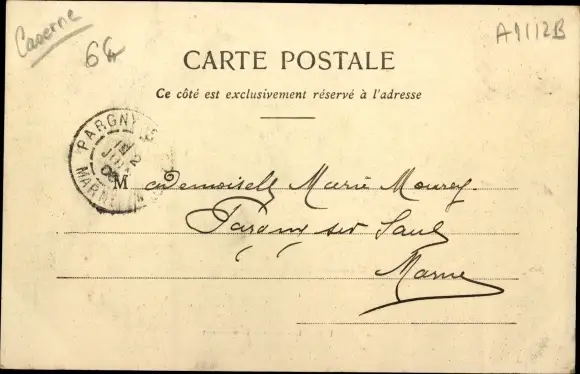 Caserne
6
A1112B
CARTE POSTALE
Ce côté est exclusivement réservé à l'adresse
PARGNY
MARNE
Mademoiselle Marie Mourey.
Pargny sur Saulx
Marne